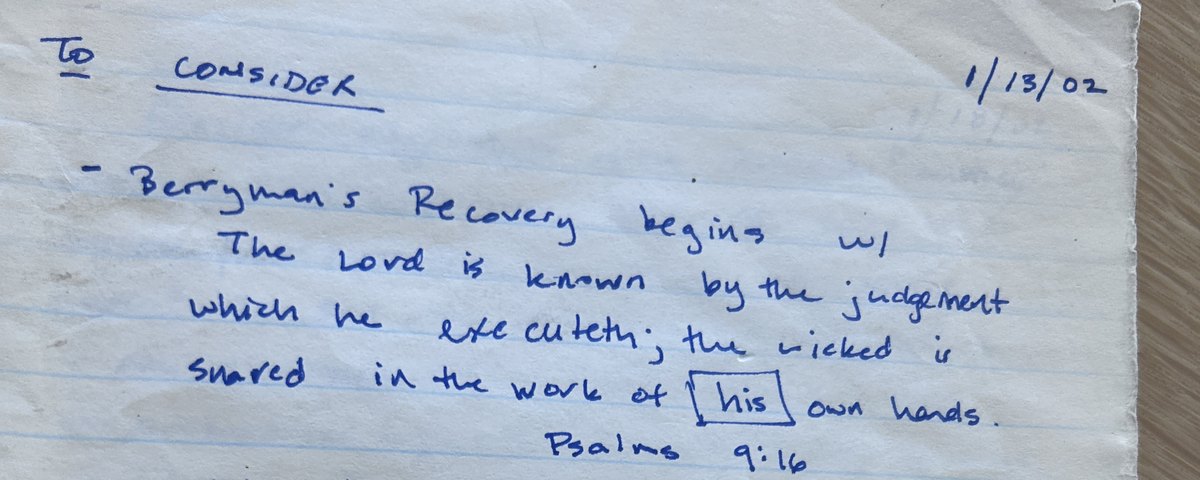 To CONSIDER 1/13/02
- Berryman's Recovery begins w/
The Lord is known by the judgement
which he executeth; the wicked is
snared in the work of his own hands.
Psalms 9:16